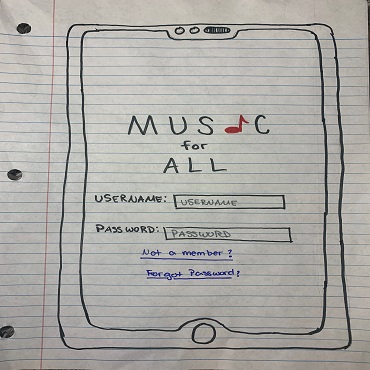 MUSIC
for
ALL
USERNAME: USERNAME
PASSWORD: PASSWORD
Not a member?
Forgot Password?